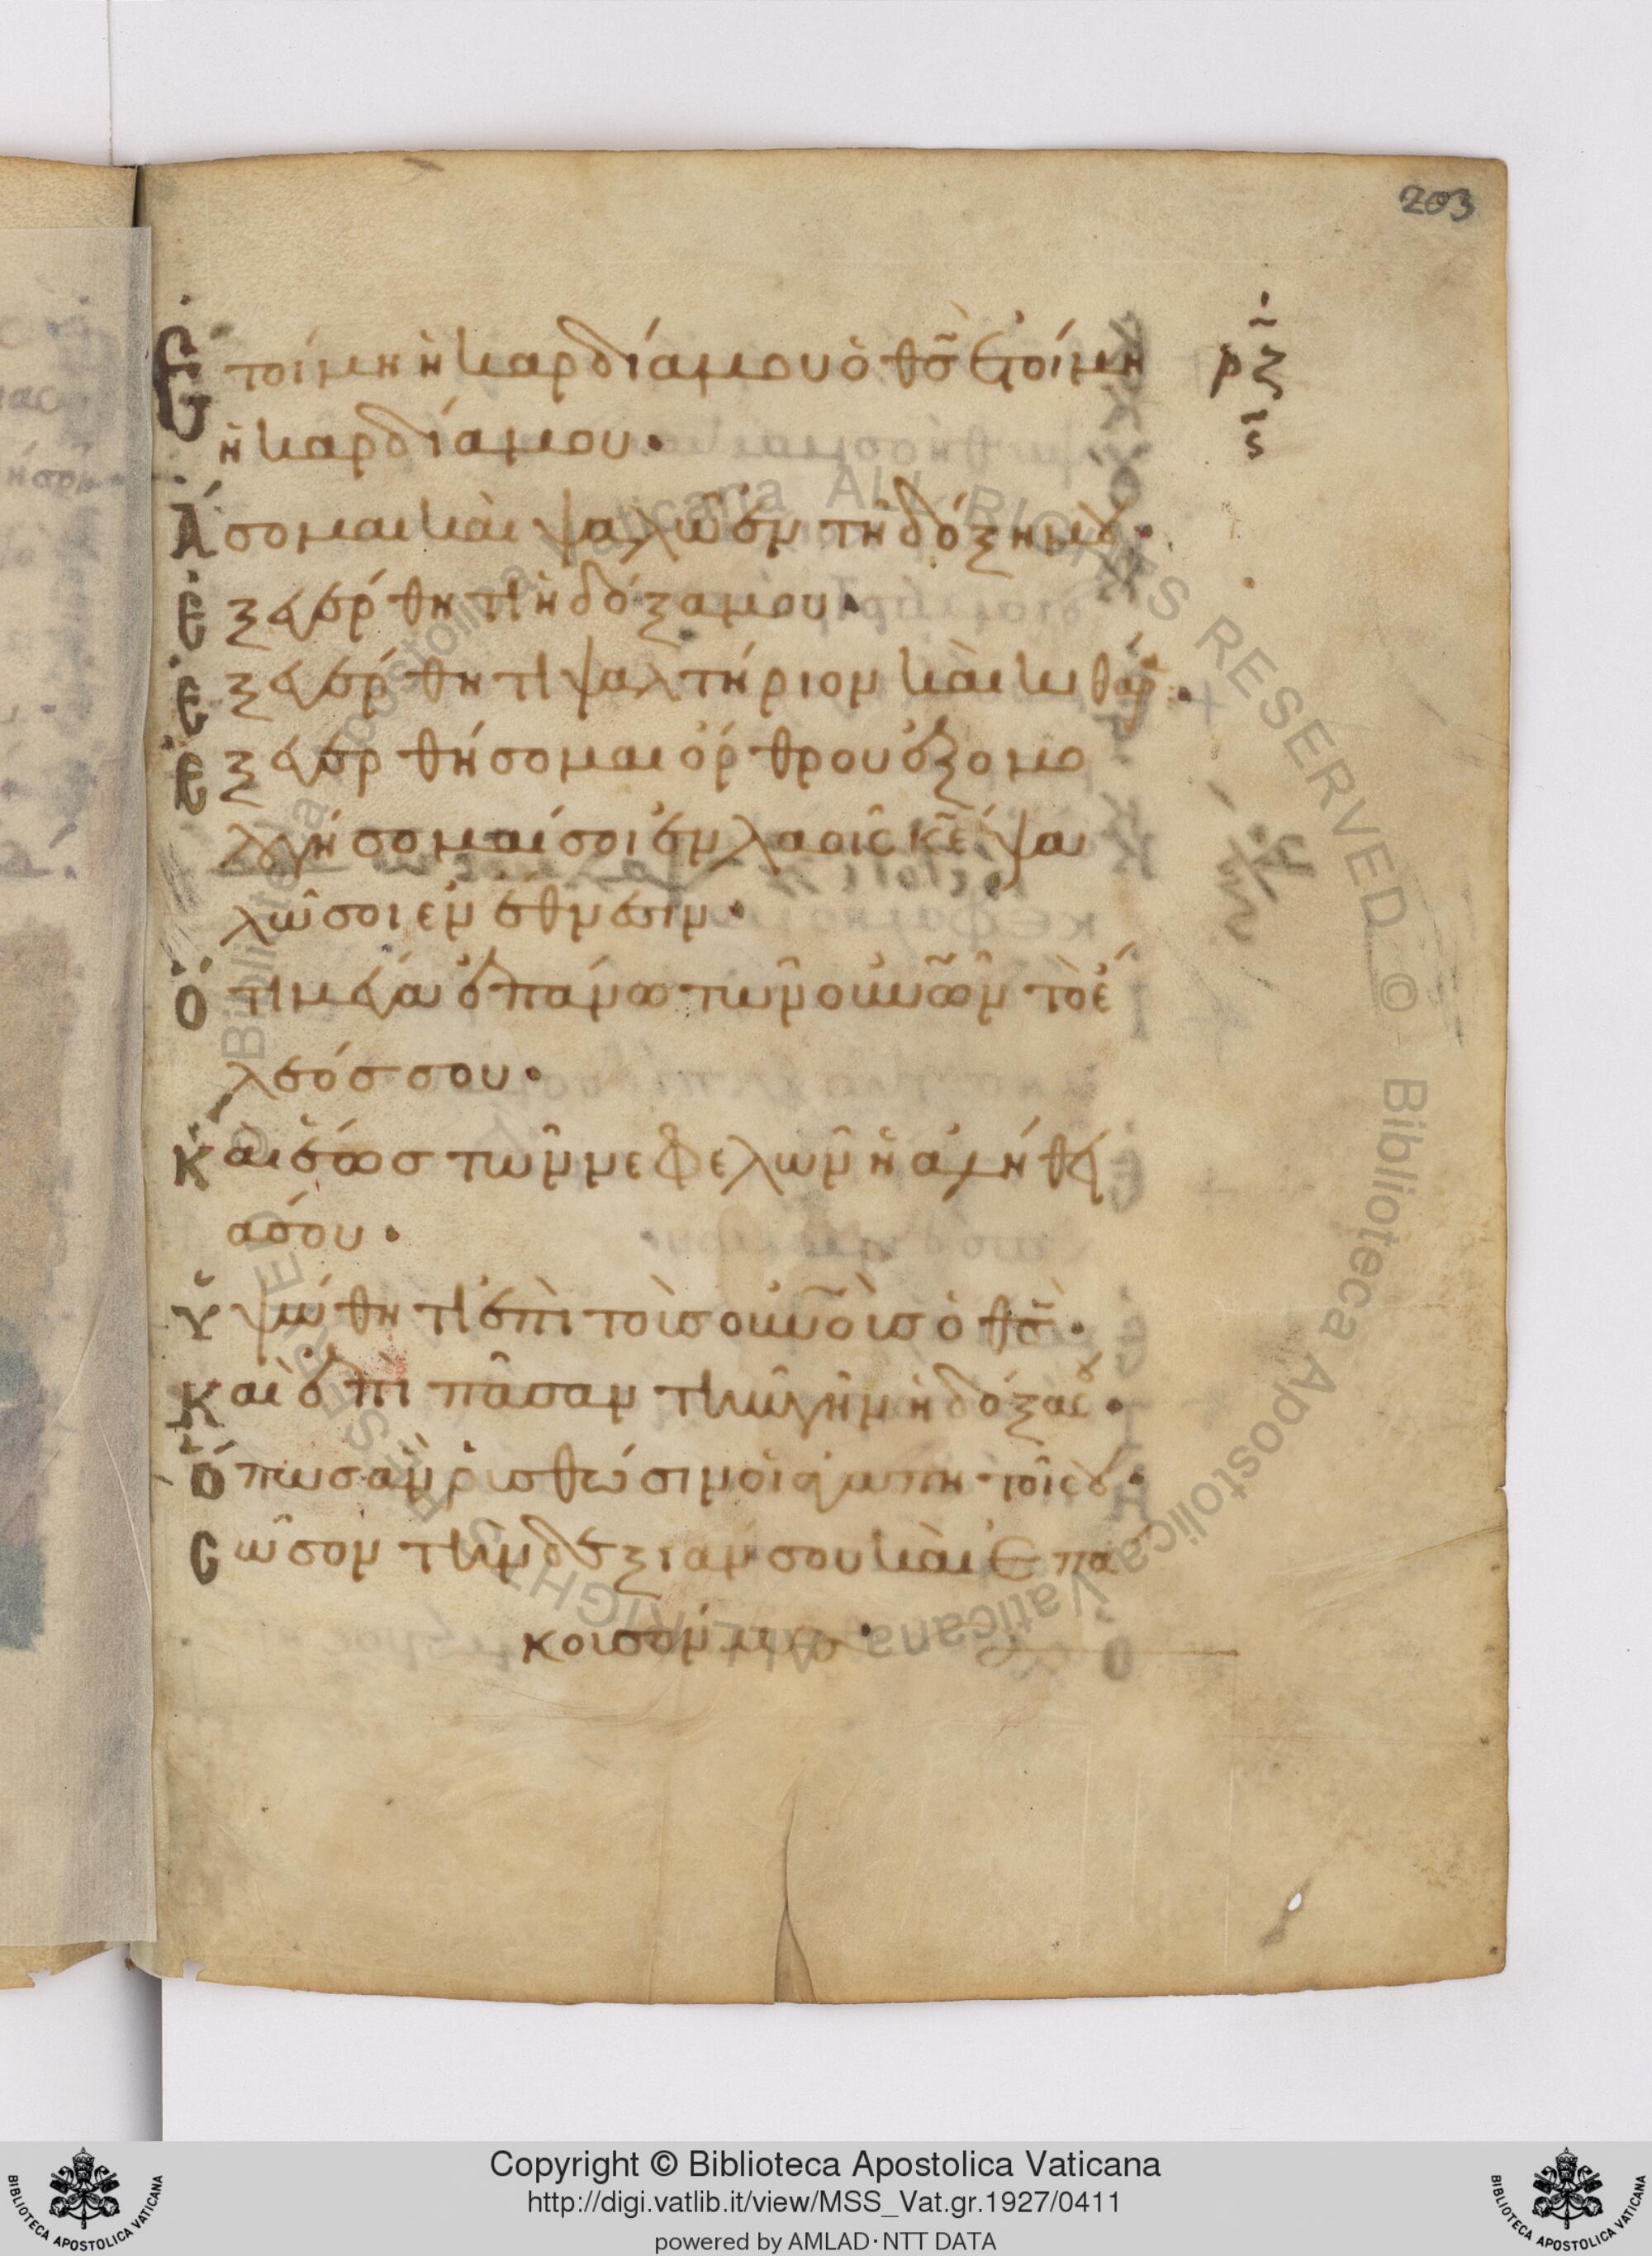 203
Ἑτοίμη ἡ καρδία μου ὁ θ̅σ̅ ἑτοίμη
ρζ
ἡ καρδία μου·
ς
Ἄσομαι καὶ ψαλῶ ἐν τῆ δόξη μου·
ἐξεγέρθητι ἡ δόξα μου·
ἐξεγέρθητι ψαλτήριον καὶ κιθάρα·
ἐξεγερθήσομαι ὄρθρου ἐξομο
λογήσομαί σοι ἐν λαοῖς κ̅ε̅ ψα
λῶ σοι ἐν ἔθνεσιν·
Ὅτι μέγα ἐπάνω τῶν ο̅υ̅ν̅ω̅ν τὸ ἔ
λεόσ σου·
Καὶ ἕωσ τῶν νεφελῶν ἡ ἀλήθει
α σου·
Ὑψώθητι ἐπὶ τοὺσ ο̅υ̅ν̅ο̅ὺσ ὁ θ̅σ̅·
Καὶ ἐπὶ πᾶσαν τὴν γῆν ἡ δόξα σου·
Ὅπωσ ἂν ῥυσθῶσιν οἱ ἀγαπητοί σου·
Σῶσον τῆ δεξιᾶ σου καὶ ἐπά
κουσόν μου·
© Biblioteca Apostolica Vaticana ALL RIGHTS RESERVED © Biblioteca Apostolica Vaticana ALL RIGHTS RESERVED
Copyright © Biblioteca Apostolica Vaticana
http://digi.vatlib.it/view/MSS_Vat.gr.1927/0411
powered by AMLAD·NTT DATA
BIBLIOTECA APOSTOLICA VATICANA
BIBLIOTECA APOSTOLICA VATICANA